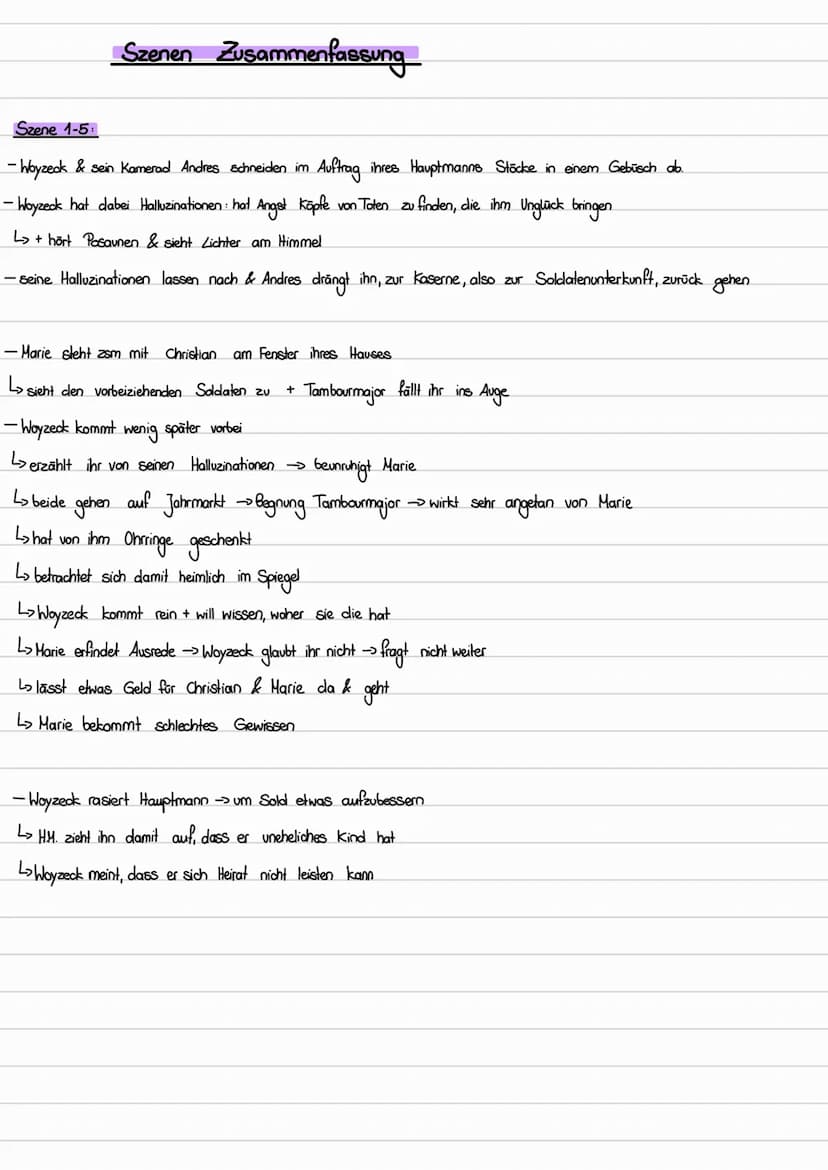 Szenen Zusammenfassung
Szene 1-5:
- Woyzeck & sein Kamerad Andres schneiden im Auftrag ihres Hauptmanns Stöcke in einem Gebüsch ab.
- Woyzeck hat dabei Halluzinationen: hat Angst Köpfe von Toten zu finden, die ihm Unglück bringen
↳ + hört Posaunen & sieht Lichter am Himmel
- seine Halluzinationen lassen nach & Andres drängt ihn, zur Kaserne, also zur Soldatenunterkunft, zurück gehen
- Marie steht zsm mit Christian am Fenster ihres Hauses
↳ sieht den vorbeiziehenden Soldaten zu + Tambourmajor fällt ihr ins Auge
- Woyzeck kommt wenig später vorbei
↳ erzählt ihr von seinen Halluzinationen → beunruhigt Marie
↳ beide gehen auf Jahrmarkt → Begnung Tambourmajor → wirkt sehr angetan von Marie
↳ hat von ihm Ohrringe geschenkt
↳ betrachtet sich damit heimlich im Spiegel
↳ Woyzeck kommt rein + will wissen, woher sie die hat
↳ Marie erfindet Ausrede → Woyzeck glaubt ihr nicht → fragt nicht weiter
↳ lässt etwas Geld für Christian & Marie da & geht
↳ Marie bekommt schlechtes Gewissen
- Woyzeck rasiert Hauptmann → um Sold etwas aufzubessern
↳ HM. zieht ihn damit auf, dass er uneheliches Kind hat
↳ Woyzeck meint, dass er sich Heirat nicht leisten kann